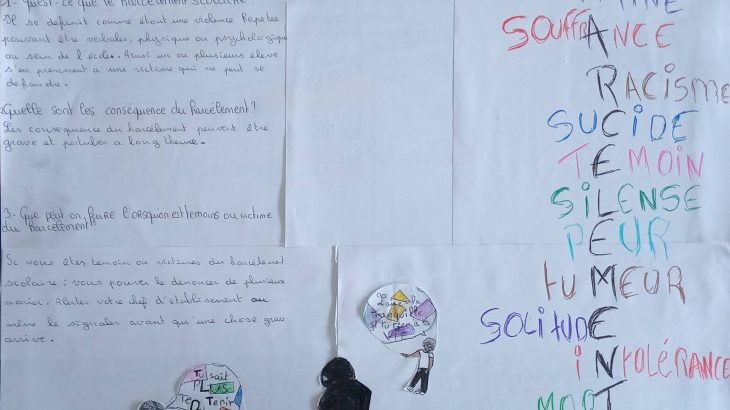 1. Qu'est-ce que le harcèlement scolaire?
Il se definit comme étant une violence Repetée
pouvant être verbales, physique ou psychologique
au sein de l'école. Ainsi un ou plusieurs éleve
s'en prennent à une victime qui ne peut se
defendre.
2. Quelle sont les conséquence du harcèlement?
Les consequence du harcèlement peuvent être
grave et pertubés a long therme.
3. Que peut on faire lorsqu'on est temoins ou victime
du harcelement
Si vous êtes temoin ou victimes du harcelement
scolaire : vous pouvez le denoncer de plusieurs
manier. Alerter votre chef d'etablissement ou
même le signaler avant qu'une chose grave
arrive.
SOUFFRANCE
RACISME
SUCIDE
TEMOIN
SILENSE
PEUR
TUMEUR
SOLITUDE
INTOLÉRANCE
MORT
tranquille
Tu sait
PLUS
Tenir